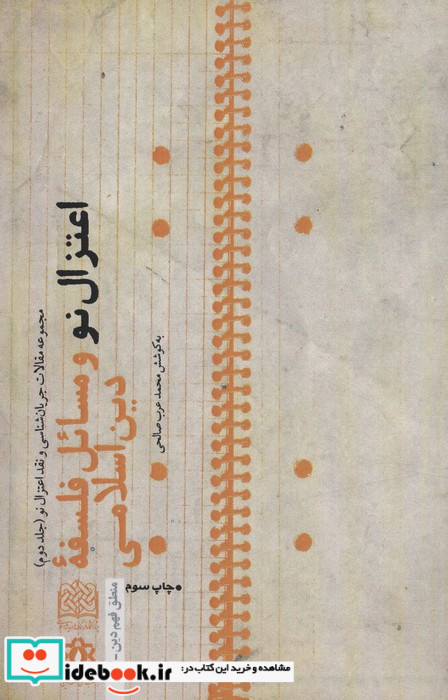 مجموعه مقالات جریان‌شناسی و نقد اعتزال نو (جلد دوم)
اعتزال نو و مسائل فلسفهٔ
دین اسلامی
به کوشش محمد عرب صالحی
چاپ سوم
منطق فهم دین -
مشاهده و خرید این کتاب در:
idebook.ir